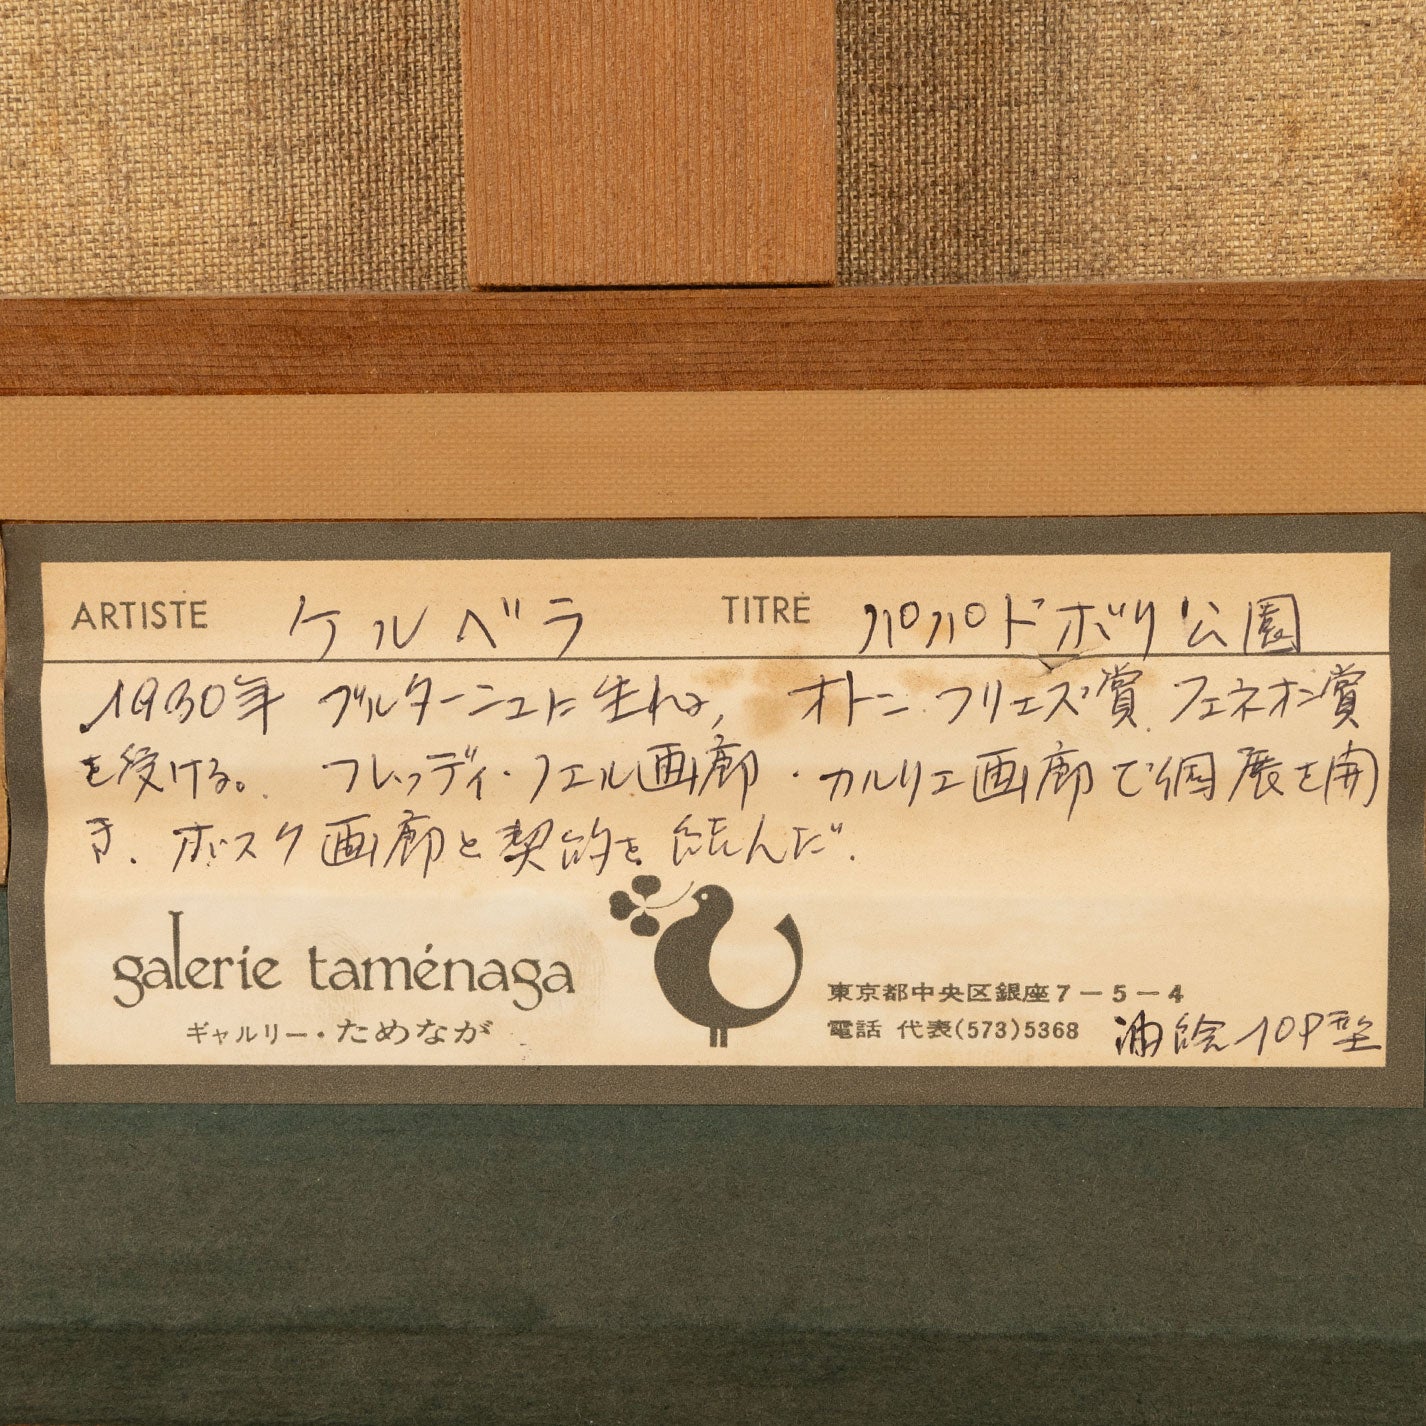 ARTISTE ケルベラ TITRE パパドボリ公園
1930年 ブルターニュに生れる, オトン・フリェズ賞、フェネオン賞
を受ける。 フレッディ・ノエル画廊・カルリエ画廊で個展を開
き、ボスク画廊と契約を結んだ.
galerie taménaga
ギャルリー・ためなが
東京都中央区銀座7-5-4
電話 代表(573)5368 油絵10P型